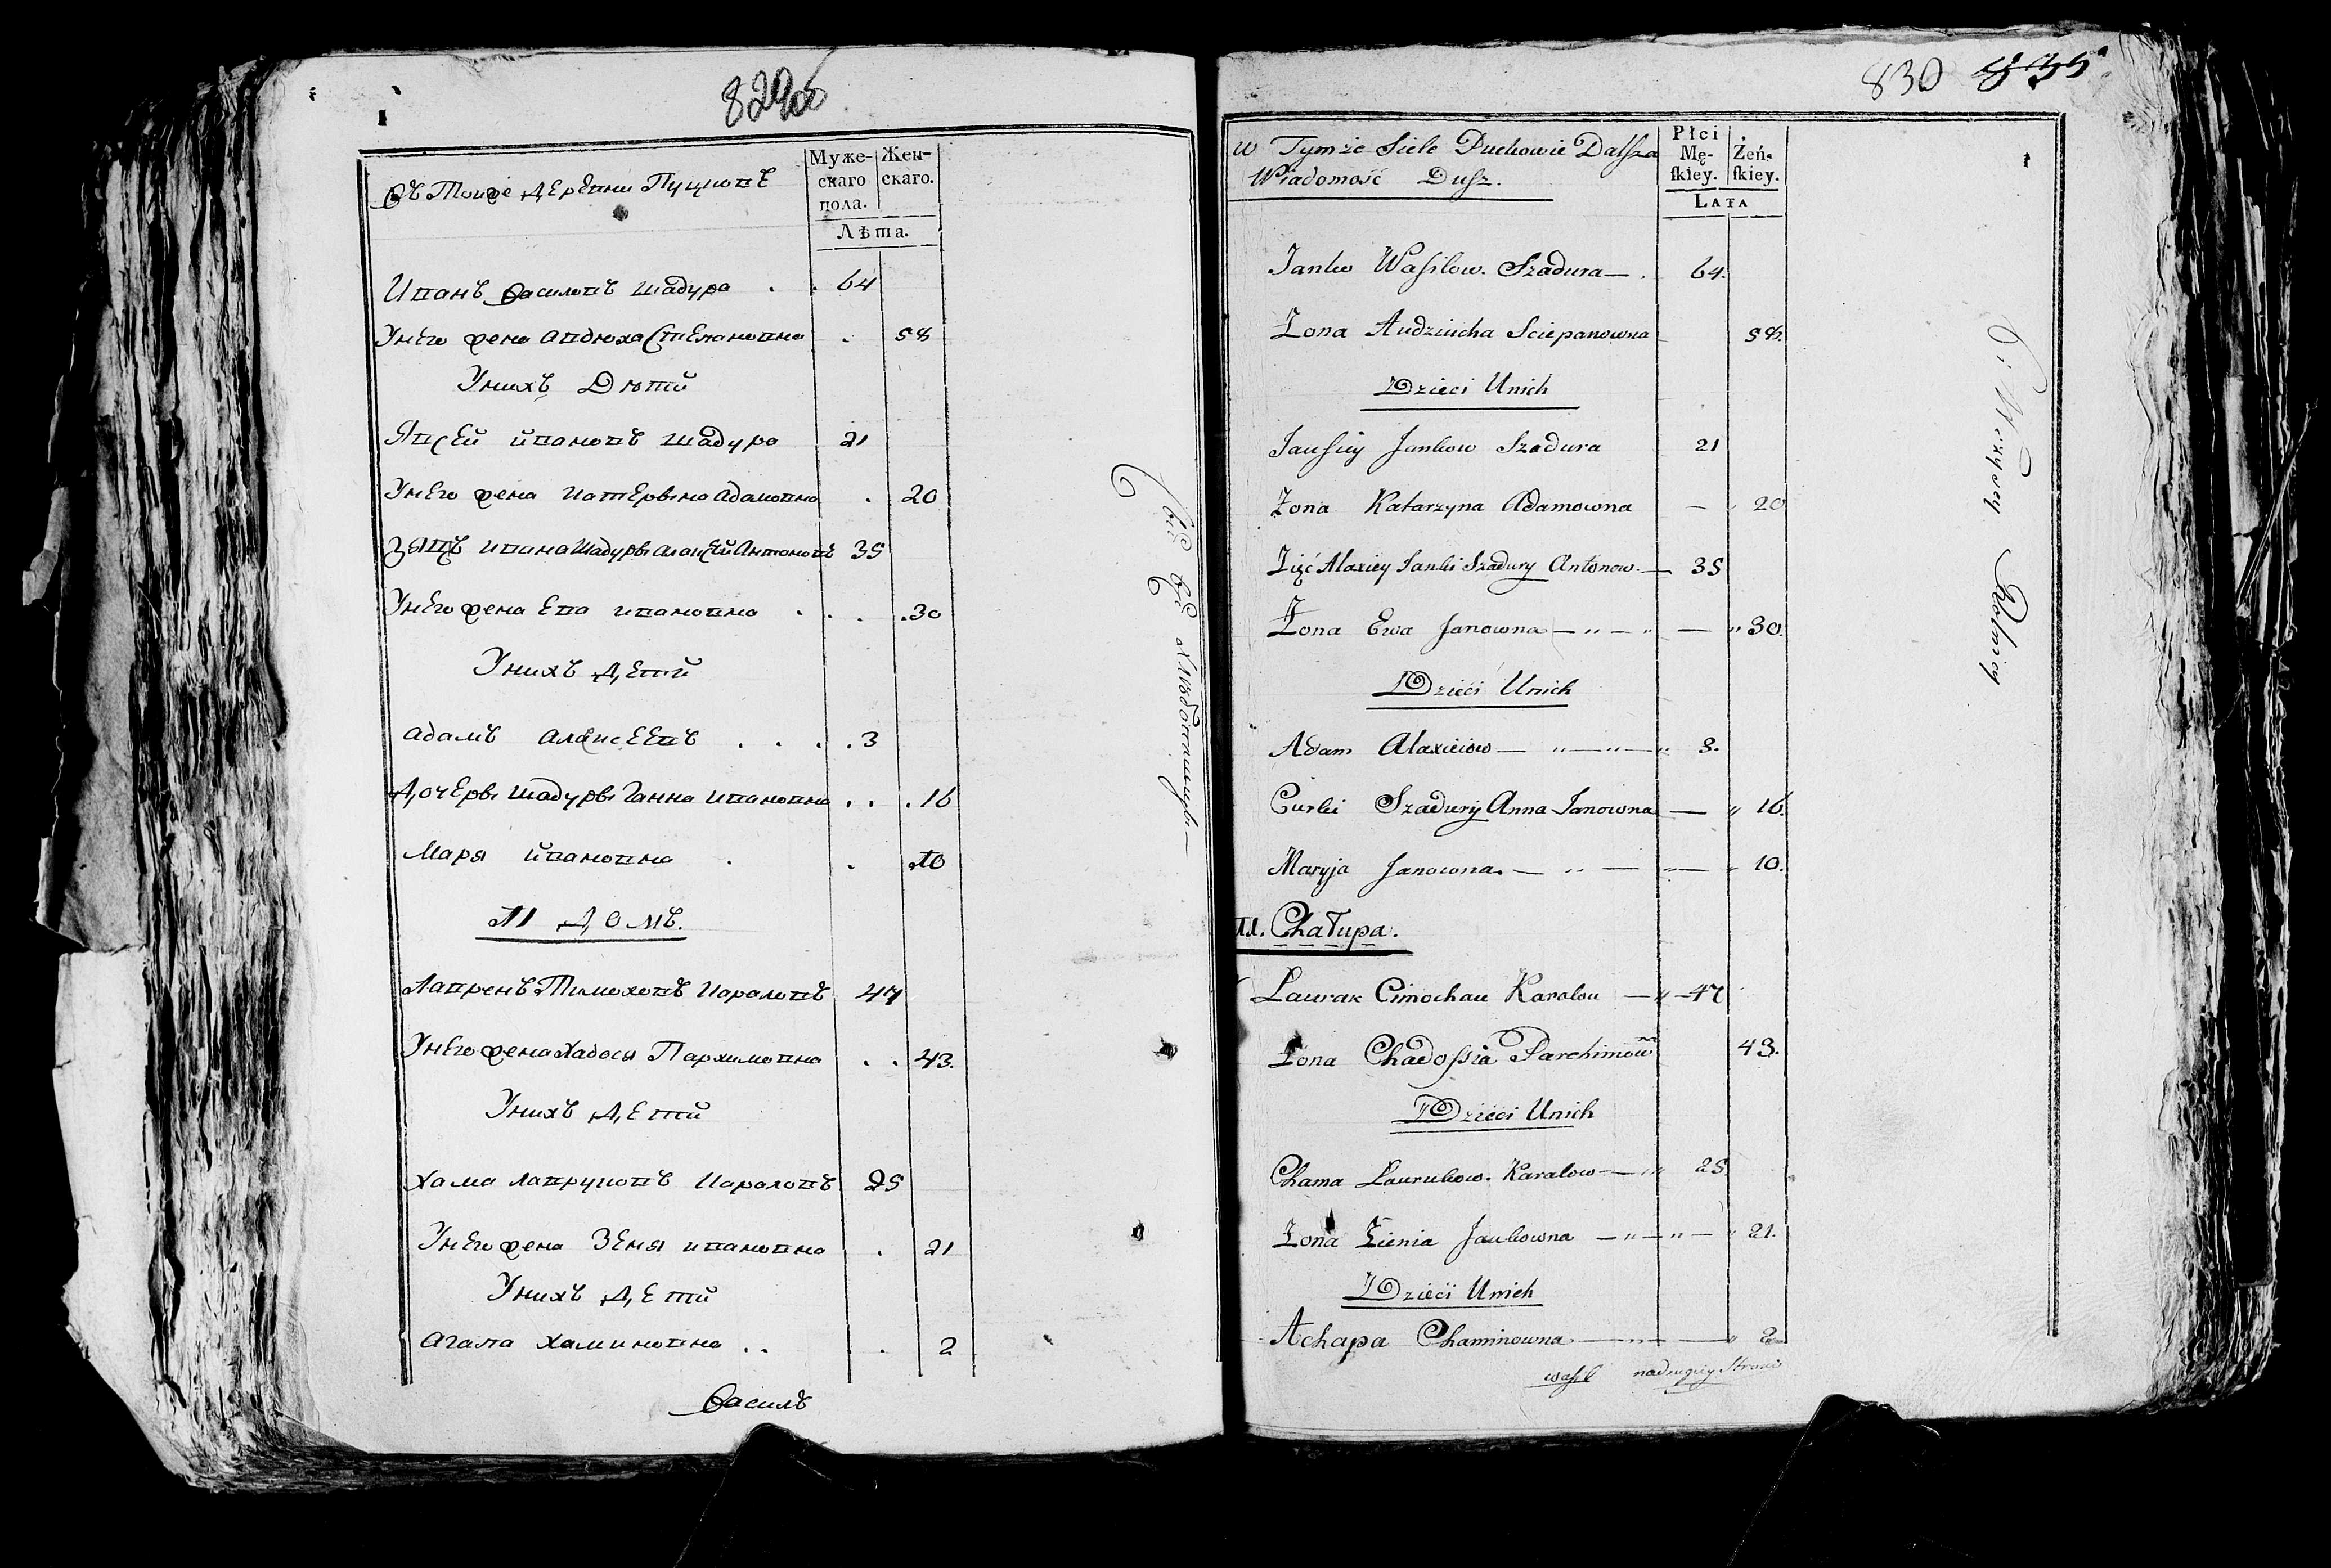 829об
Муже-
скаго
пола.
Жен-
скаго.
Лѣта.
Въ Тойже Деревни Пуцковѣ
Иванъ Василовъ Шадура . . 64
Унего жена Авдюха Степановна . 58
Унихъ Дѣтй
Явсей йвановъ шадура 21
Унего жена Катерына адамовна . 20
Зять ивана Шадуры алаксей Антоновъ 35
Унего жена Ева ивановна . . . 30
Унихъ Детй
адамъ алаксеевъ . . . . 3
Дочеры шадуры Ганна ивановна . . . 16
Маря йвановна . . 10
11 Домъ.
Лавренъ Тимоховъ Караловъ 47
Унего жена Хадося Пархимовна . . 43.
Унихъ Детй
Хама лавруковъ Караловъ 25
Унего жена Зеня ивановна . 21
Унихъ Детй
агапа хаминовна . . . 2
Василъ
830 835
w Tymże Siele Puckowie Dalsza
Wiadomość Dusz.
Płci
Mę-
skiey.
Żeń-
skiey.
Lata
Janko Wasilow. Szadura — . 64.
Żona Audziucha Sciepanowna 58.
Dzieci Unich
Jausiey Jankow Szadura 21
Żona Katarzyna Adamowna — 20
Zięć Alaxiey Janki Szadury Antonow. — 35
Żona Ewa Janowna — " — " — " 30.
Dzieci Unich
Adam Alaxieiow — " — " — " 3.
Curki Szadury Anna Janowna — " 16.
Maryja Janowna. — " — " — " 10.
11. Chałupa.
Laurak Cimochau Karalou — " — 47
Żona Chadossia Parchimowna 43.
Dzieci Unich
Chama Laurukow. Karalow — " 25
Żona Zienia Jankowna — " — " — " 21.
Dzieci Unich
Achapa Chaminowna — " — " 2
wasil na drugiey Stronie